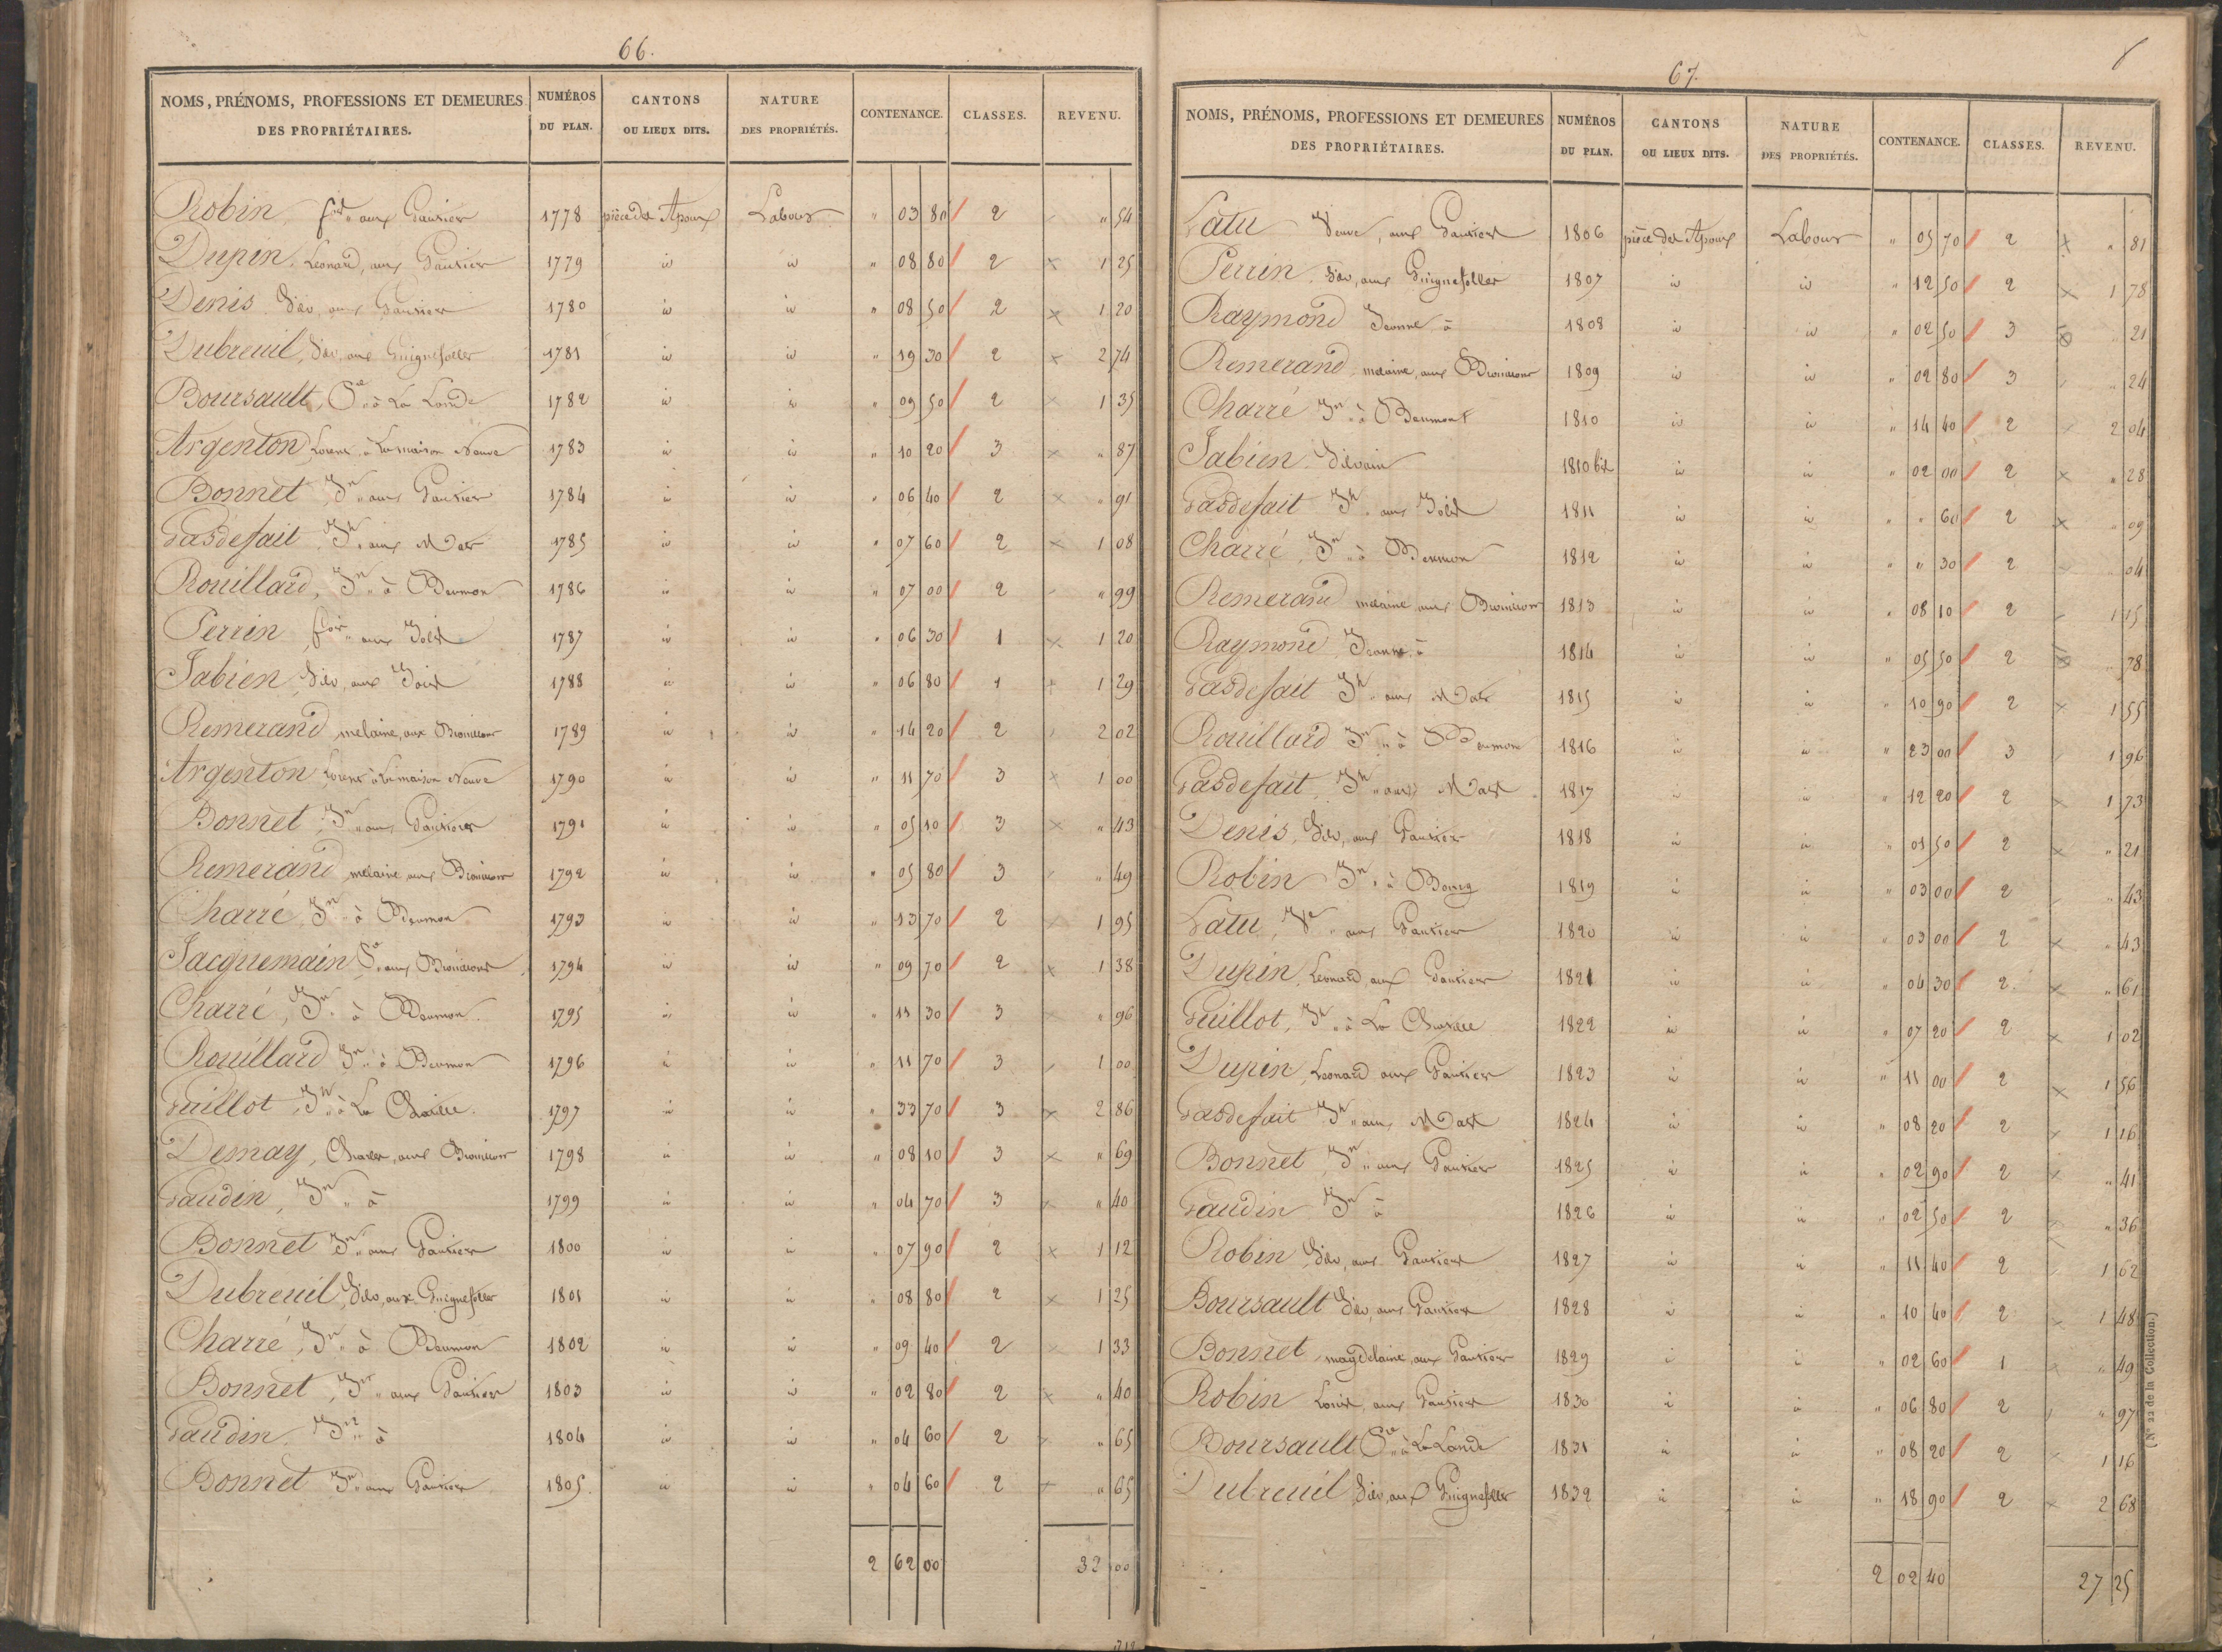 66.
NOMS, PRÉNOMS, PROFESSIONS ET DEMEURES DES PROPRIÉTAIRES. NUMÉROS DU PLAN. CANTONS OU LIEUX DITS. NATURE DES PROPRIÉTÉS. CONTENANCE. CLASSES. REVENU.
Robin aux Gautier 1778 pièce des Apoux Labour " 03 80 2 " 54
Dupin, Leonard, aux Gautier 1779 id id " 08 80 2 1 25
Denis Silv, aux Gautier 1780 id id " 08 50 2 1 20
Dubreuil, Silv, aux Guignefolles 1781 id id " 19 30 2 2 74
Boursault, à La Lande 1782 id id " 09 50 2 1 35
Argenton, Lorent à La maison Neuve 1783 id id " 10 20 3 " 87
Bonnet Jn aux Gautier 1784 id id " 06 40 2 " 91
Pasdefait, Jh aux Mats 1785 id id " 07 60 2 1 08
Rouillard, Jn à Beumon 1786 id id " 07 00 2 " 99
Perrin fois aux Jolit 1787 id id " 06 30 1 1 20
Fabien Silv, aux Jolit 1788 id id " 06 80 1 1 29
Remerand melaine, aux 1789 id id " 14 20 2 2 02
Argenton Lorent à La maison Neuve 1790 id id " 11 70 3 1 00
Bonnet Jn aux Gautier 1791 id id " 05 10 3 " 43
Remerand melaine aux 1792 id id " 05 80 3 " 49
Charré, Jn à Beumon 1793 id id " 13 70 2 1 95
Jacquemain aux 1794 id id " 09 70 2 1 38
Charré, Jn à Beumon 1795 id id " 11 30 3 " 96
Rouillard Jn à Beumon 1796 id id " 11 70 3 1 00
Guillot, Jh à La 1797 id id " 33 70 3 2 86
Demay, Charles, aux 1798 id id " 08 10 3 " 69
Gaudin, Jn à 1799 id id " 04 70 3 " 40
Bonnet Jn aux Gautier 1800 id id " 07 90 2 1 12
Dubreuil, Silv, aux Guignefolles 1801 id id " 08 80 2 1 25
Charré, Jn à Beumon 1802 id id " 09 40 2 1 33
Bonnet, Jn aux Gautier 1803 id id " 02 80 2 " 40
Gaudin, Jn à 1804 id id " 04 60 2 " 65
Bonnet Jn aux Gautier 1805 id id " 04 60 2 " 65
2 62 00 32 00
67.
NOMS, PRÉNOMS, PROFESSIONS ET DEMEURES DES PROPRIÉTAIRES. NUMÉROS DU PLAN. CANTONS OU LIEUX DITS. NATURE DES PROPRIÉTÉS. CONTENANCE. CLASSES. REVENU.
Latu Veuve, aux Gautier 1806 pièce des Apoux Labour " 05 70 2 " 81
Perrin, Silv, aux Guignefolles 1807 id id " 12 50 2 1 78
Raymond Jeanne à 1808 id id " 02 50 3 " 21
Remerand, melaine, aux 1809 id id " 02 80 3 " 24
Charré Jn à Beumont 1810 id id " 14 40 2 2 04
Fabien, Silvain 1810 bis id id " 02 00 2 " 28
Pasdefait Jh aux Jolit 1811 id id " " 60 2 " 09
Charré, Jn à Beumon 1812 id id " " 30 2 " 04
Remerand melaine aux 1813 id id " 08 10 2 1 15
Raymond, Jeanne à 1814 id id " 05 50 2 " 78
Pasdefait Jh aux Mats 1815 id id " 10 90 2 1 55
Rouillard Jn à Beumon 1816 id id " 23 00 3 1 96
Pasdefait, Jh aux Mats 1817 id id " 12 20 2 1 73
Denis, Silv, aux Gautier 1818 id id " 01 50 2 " 21
Robin Jn à Bourg 1819 id id " 03 00 2 " 43
Latu, Ve aux Gautier 1820 id id " 03 00 2 " 43
Dupin, Leonard, aux Gautier 1821 id id " 04 30 2 " 61
Guillot, Jh à La 1822 id id " 07 20 2 1 02
Dupin, Leonard aux Gautier 1823 id id " 11 00 2 1 56
Pasdefait Jh aux Mats 1824 id id " 08 20 2 1 16
Bonnet, Jn aux Gautier 1825 id id " 02 90 2 " 41
Gaudin Jn à 1826 id id " 02 50 2 " 36
Robin Silv, aux Gautier 1827 id id " 11 40 2 1 62
Boursault Silv, aux Gautier 1828 id id " 10 40 2 1 48
Bonnet, magdelaine, aux Gautier 1829 id id " 02 60 1 " 49
Robin Louis, aux Gautier 1830 id id " 06 80 2 " 97
Boursault à La Lande 1831 id id " 08 20 2 1 16
Dubreuil, Silv, aux Guignefolles 1832 id id " 18 90 2 2 68
2 02 40 27 25
(N° 22 de la Collection.)